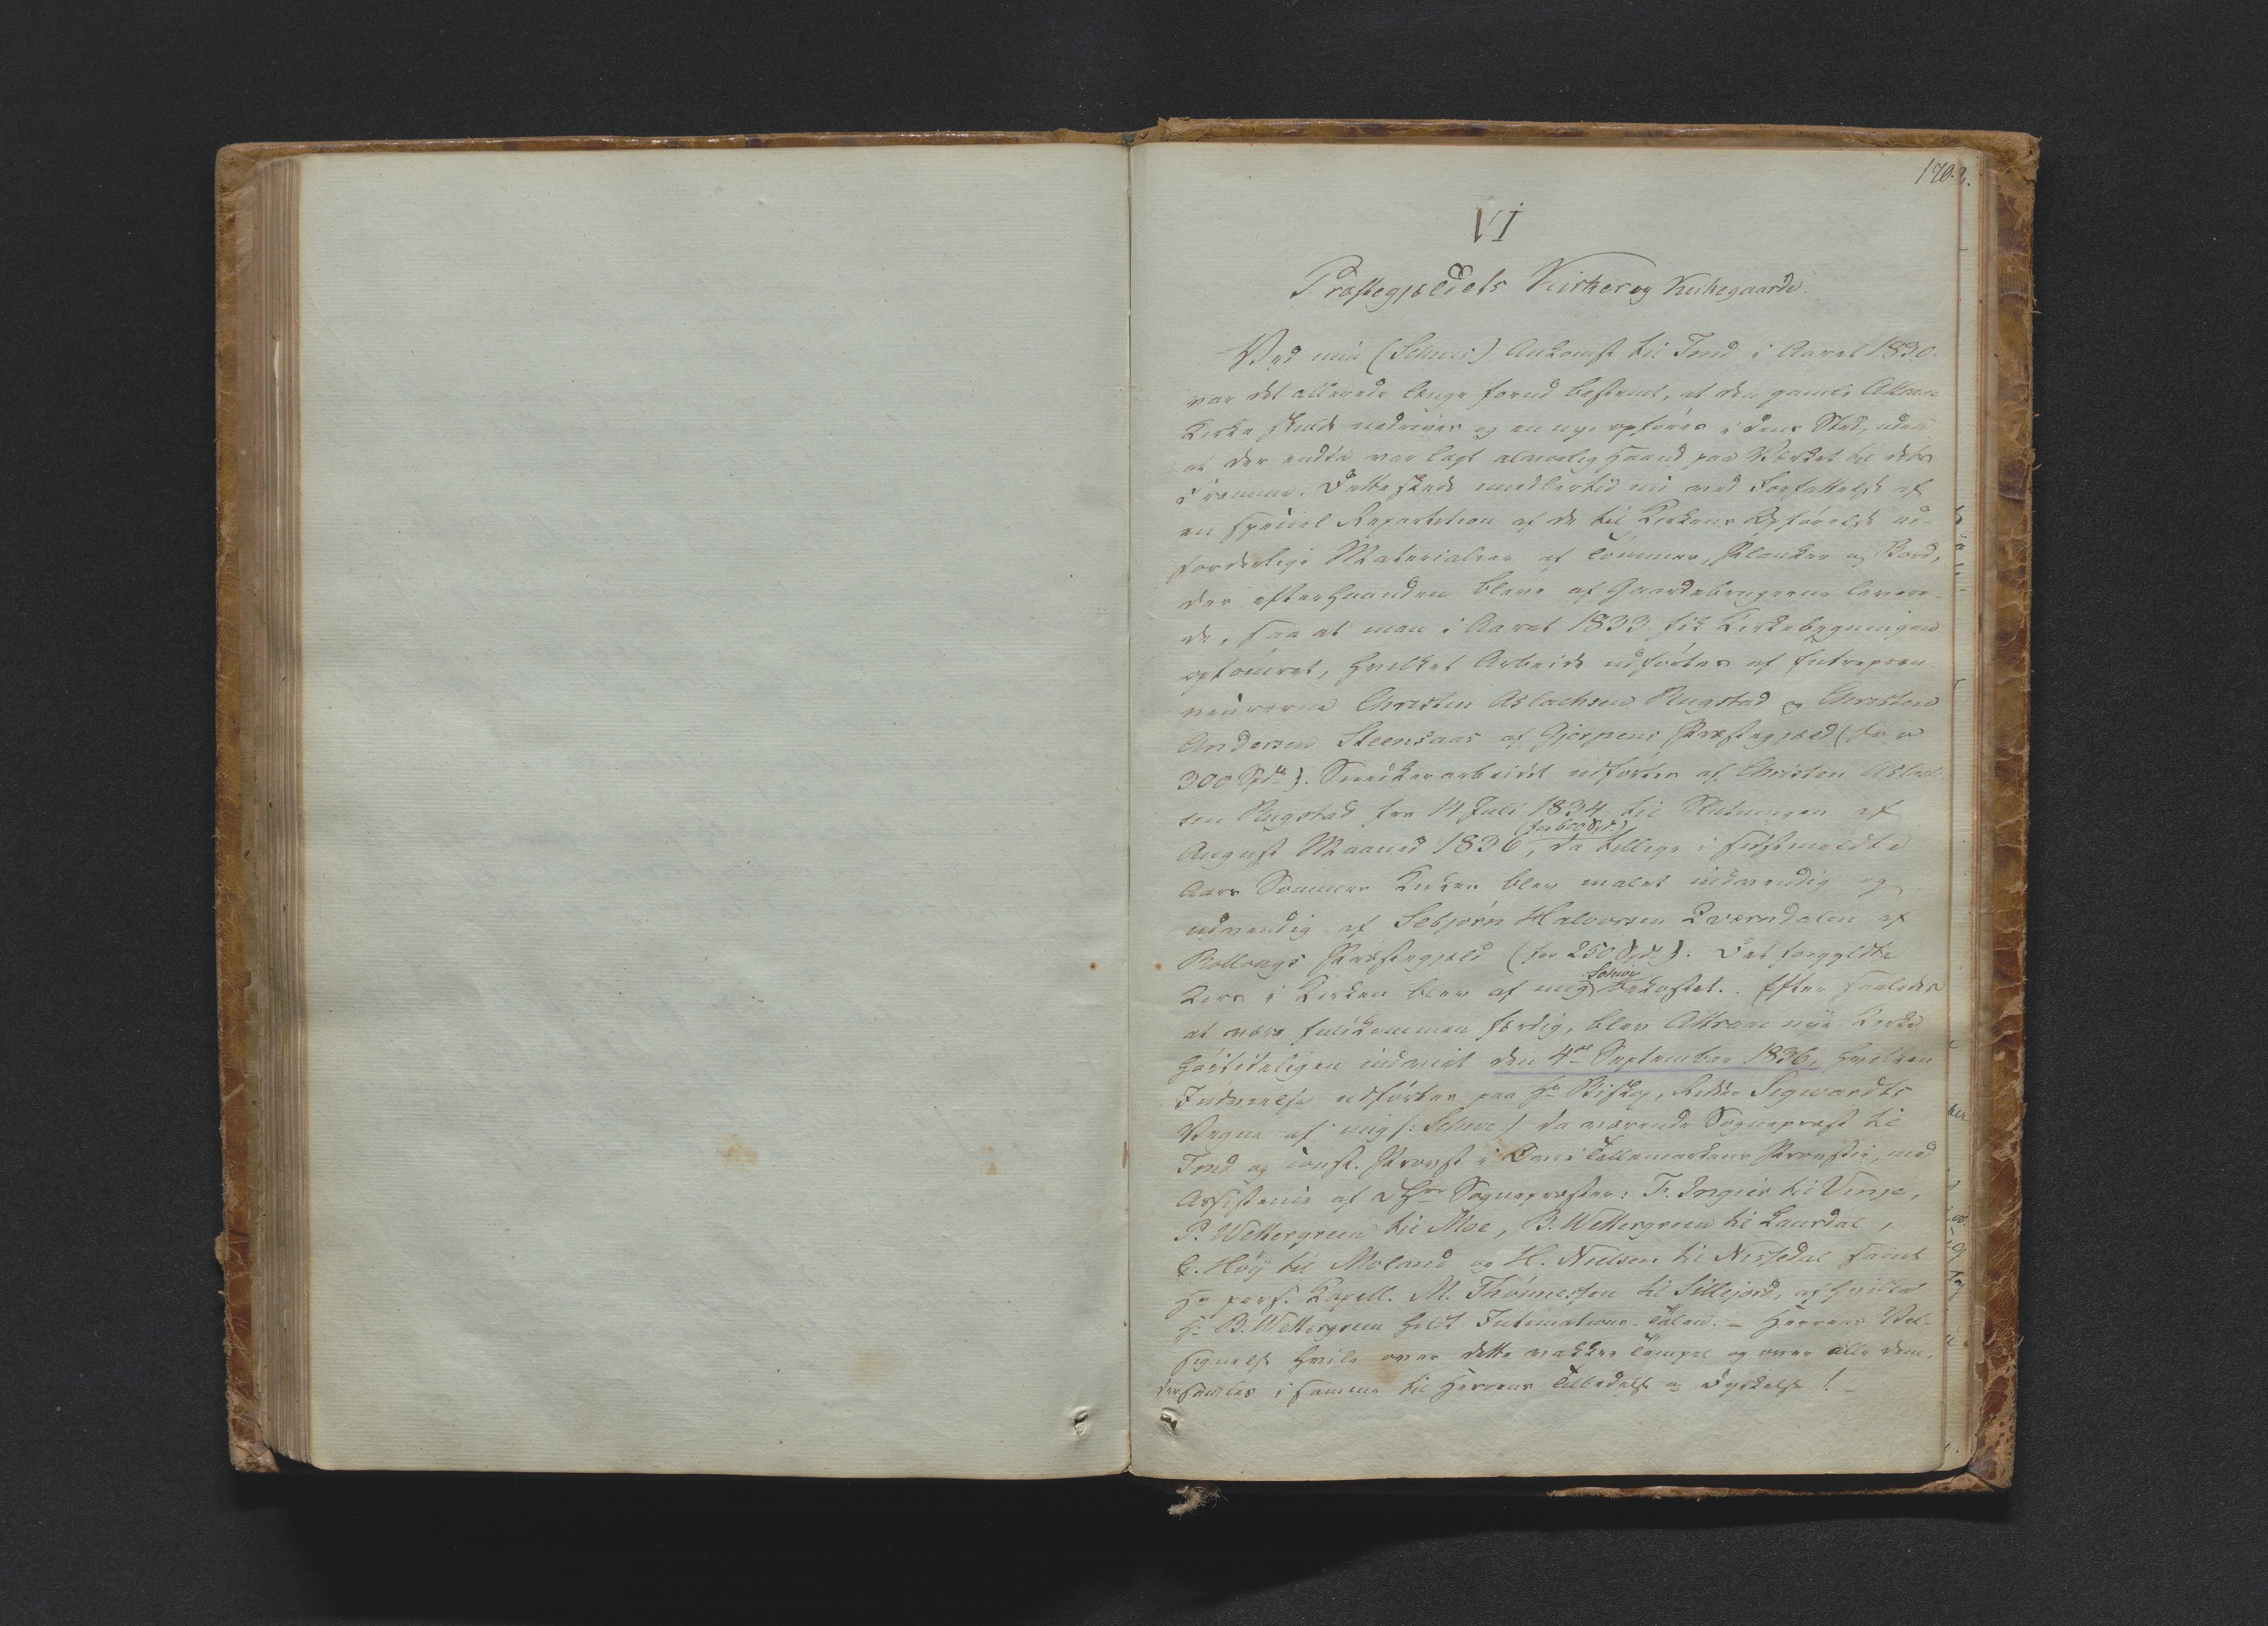 170.
VI
Præstegjældets Kirker og Kirkegaarde.
Ved min (Schives) Ankomst til Tind i Aaret 1830.
var det allerede længe forud bestemt, at den gamle Attraae
Kirke skulde nedrives og en nye opføres i dens Sted, uden
at der endda var lagt alvorlig Haand paa Værket til dets
Fremme. Dette skede imidlertid nu ved Forfattelse af
en special Repartition af de til Kirkens Opførelse ud-
fordrelige Materialier af Tømmer, Planker og Bord,
der efterhaanden bleve af Gaardebrugerne levere-
de, saa at man i Aaret 1833 fik Kirkebygningen
optømret, hvilket Arbeide udførtes af Entrepren-
neurerne Christen Aslachsen Rugstad og Christen
Andersen Steensaas af Gjerpens Præstegjæld (for
300 Spd). Snedkerarbeidet udførtes af Christen Aslach-
sen Rugstad fra 14 Juli 1834 til Slutningen af
(for 600 Spd.)
August Maaned 1836, da tillige i sidstmeldte
Aars Sommer Kirken blev malet indvendig og
udvendig af Sebjørn Halvorsen Qværndalen af
Rollougs Præstegjæld (for 250 Spd.). Det forgyldte
Schive
Kors i Kirken blev af mig bekostet. Efter saaledes
at være fuldkommen færdig, blev Attraae nye Kirke
høitideligen indviet den 4de September 1836, hvilken
Indvielse udførtes paa Hr Biskop, Ridder Sigwardts
Vegne af mig /: Schive :/ da værende Sognepræst til
Tind og const. Provst i Øvre Tellemarkens Provstie, med
Assistence af DHrr Sognepræster: F. Ingier til Vinje,
P. Wettergreen til Moe, B. Wettergreen til Laurdal,
E. Høÿ til Moland og H. Nielsen til Nissedal samt
Hr pers. Kapell. M. Thønnessen til Sillejord, af hvilke
Hr B. Wettergreen holdt Intimations-Talen. – Herrens Vel-
signelse hvile over dette vakkre Tempel og over alle dem,
der samles i samme til Herrens Tilbedelse og Dyrkelse! –